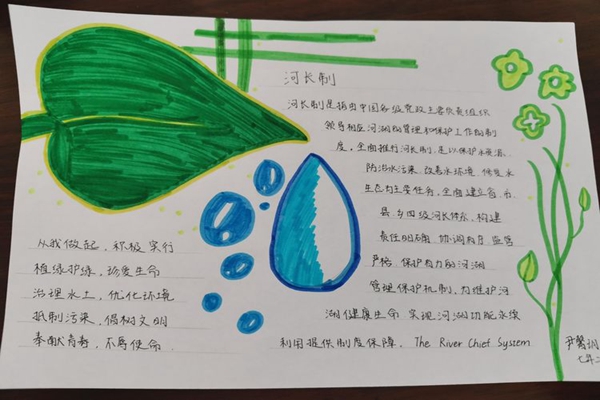 河长制
河长制是指由中国各级党政主要负责人组织
领导相应河湖的管理和保护工作的制
度，全面推行河长制，是以保护水资源、
防治水污染、改善水环境、修复水
生态为主要任务，全面建立省、市、
县、乡四级河长体系，构建
责任明确、协调有序、监管
严格、保护有力的河湖
管理保护机制，为维护河
湖健康生命、实现河湖功能永续
利用提供制度保障。 The River Chief System
从我做起，积极实行
植绿护绿，珍爱生命
治理水土，优化环境
抵制污染，倡树文明
奉献青春，不辱使命
尹馨
七年二